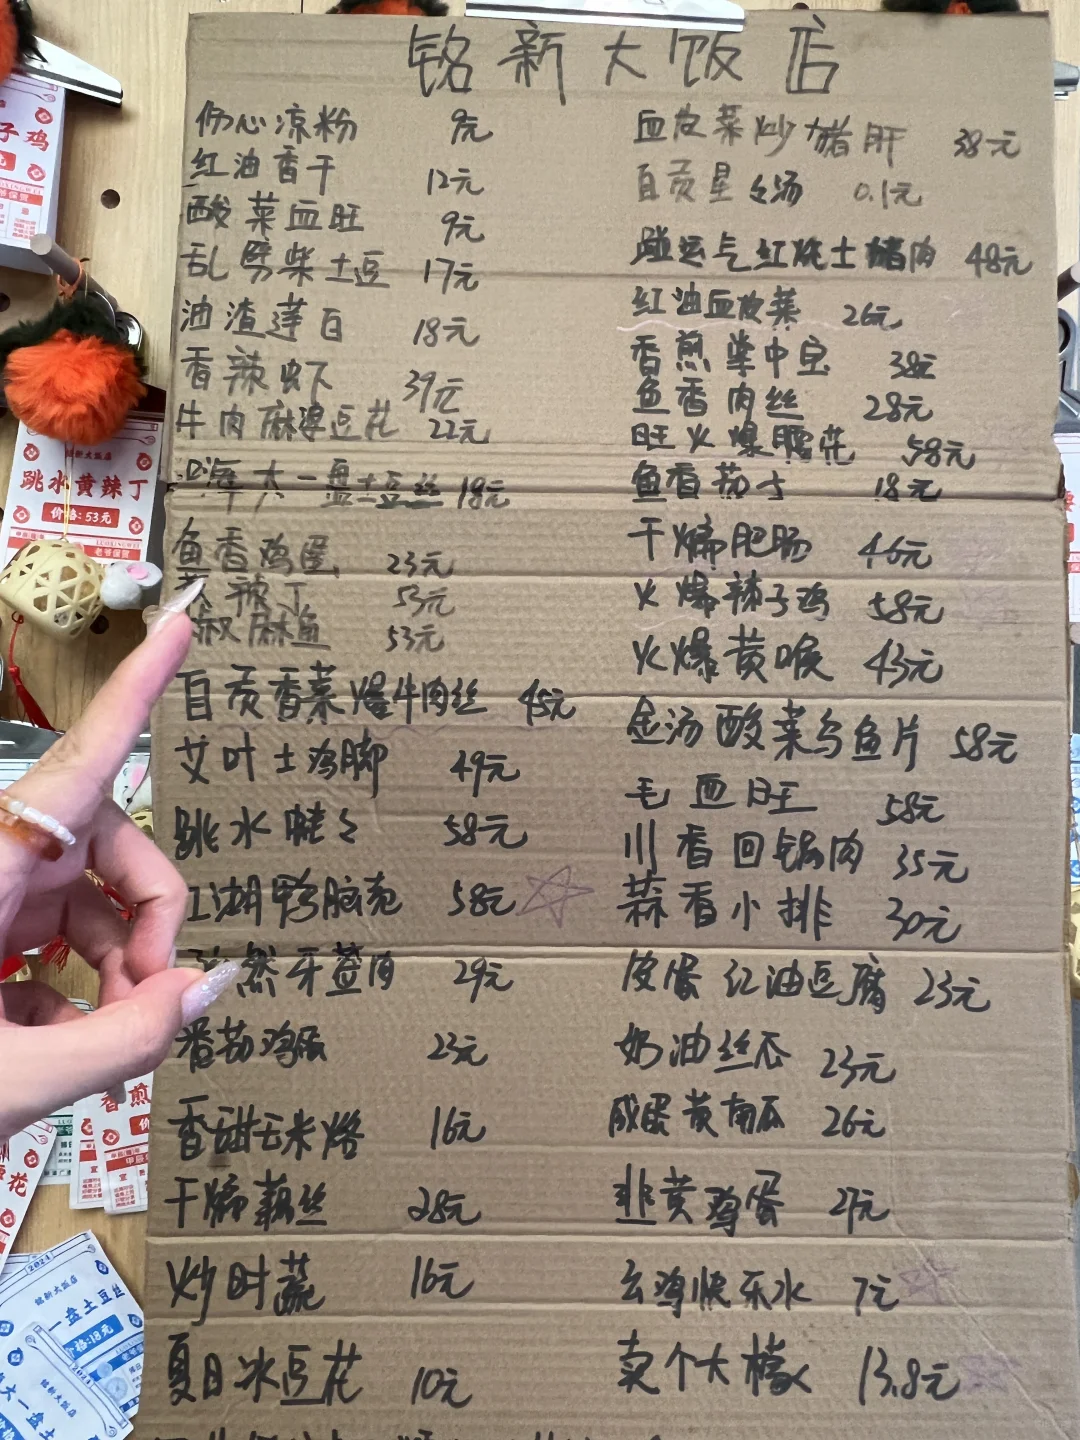 铭新大饭店
伤心凉粉 9元
红油香干 12元
酸菜血旺 9元
乱劈柴土豆 17元
油渣莲白 18元
香辣虾 39元
牛肉麻婆豆花 22元
嗨大一盘土豆丝 18元
鱼香鸡蛋 23元
辣丁 53元
椒麻鱼 53元
自贡香菜爆牛肉丝 45元
艾叶土鸡脚 49元
跳水蛙々 58元
江湖鸭脑壳 58元
然牙签肉 29元
番茄鸡蛋 23元
香甜玉米烙 16元
干煸藕丝 28元
炒时蔬 16元
夏日冰豆花 10元
血皮菜炒猪肝 38元
自贡星々汤 0.1元
碰运气红烧土猪肉 48元
红油血皮菜 26元
香煎掌中宝 38元
鱼香肉丝 28元
旺火爆腰花 58元
鱼香茄子 18元
干煸肥肠 46元
火爆辣子鸡 58元
火爆黄喉 43元
金汤酸菜乌鱼片 58元
毛血旺 58元
川香回锅肉 35元
蒜香小排 30元
皮蛋红油豆腐 23元
奶油丝瓜 23元
咸蛋黄南瓜 26元
韭黄鸡蛋 27元
玄鸡快乐水 7元
卖个大檬 13.8元
子鸡
铭新大饭店
跳水黄辣丁
价格:53元
香煎
花
2024
铭新大饭店
一盘土豆丝
价格:18元
2024
铭新大饭店
大一盘土